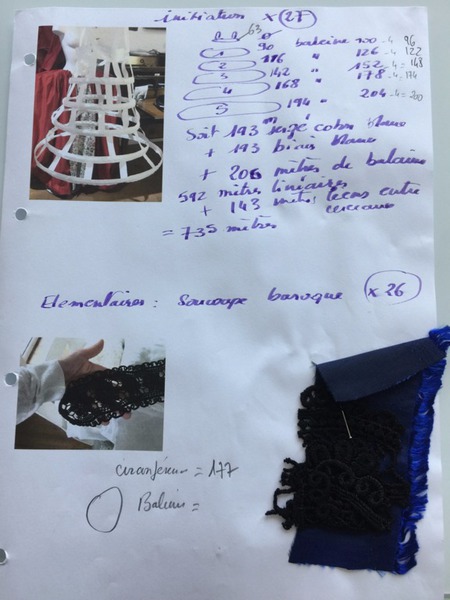 initiation x 27
63
90 baleine 100 -4 96
1 116 " 126 -4 122
2 142 " 152 -4 = 148
3 168 " 178 -4 = 174
4 194 " 204 -4 = 200
5
Soit 193 m sergé coton blanc
+ 193 biais blanc
+ 206 mètres de baleine
592 mètres linéaires
+ 143 mètres liens entre
cerceaux
= 735 mètres
Elementaires : Soucoupe baroque x 26
circonférence = 177
Baleine =